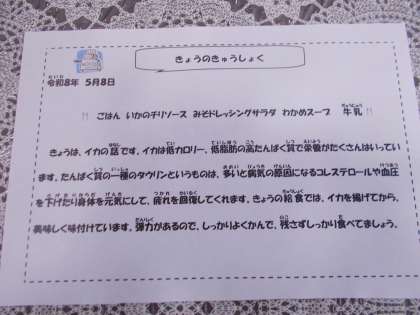 きょうのきゅうしょく
令和8年 5月8日
!! ごはん いかのチリソース みそドレッシングサラダ わかめスープ 牛乳 !!
きょうは、イカの話です。イカは低カロリー、低脂肪の高たんぱく質で栄養がたくさんはいってい
ます。たんぱく質の一種のタウリンというものは、多いと病気の原因になるコレステロールや血圧
を下げたり身体を元気にして、疲れを回復してくれます。きょうの給食では、イカを揚げてから、
美味しく味付けています。弾力があるので、しっかりよくかんで、残さずしっかり食べてましょう。